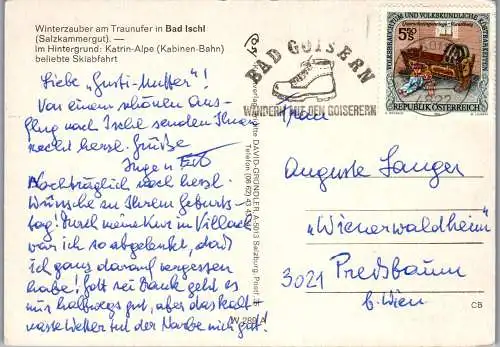 Winterzauber am Traunufer in Bad Ischl
(Salzkammergut). —
Im Hintergrund: Katrin-Alpe (Kabinen-Bahn)
beliebte Skiabfahrt
Liebe „Gusti-Mutter"!
Von einem schönen Aus-
flug nach Ischl senden Ihnen
recht herzl. Grüße
Inge u.
Nachträglich noch herzl.
Wünsche zu Ihrem Geburts-
tag! Durch meine Kur in Villach
war ich so abgelenkt, daß
ich ganz darauf vergessen
habe! Gott sei Dank geht es
mir halbwegs gut, aber das kalt-
nasse Wetter tut der Narbe nicht gut!
DAVID-GRÜNDLER, A-5013 Salzburg, Postf.
Telefon (06 62)
BAD GOISERN
WANDERN MIT DEN GOISERERN
VOLKSBRAUCHTUM UND VOLKSKUNDLICHE KOSTBARKEITEN
5,50
S
REPUBLIK ÖSTERREICH
Frau
Auguste Langer
„Wienerwaldheim"
3021 Preßbaum
b. Wien
CB